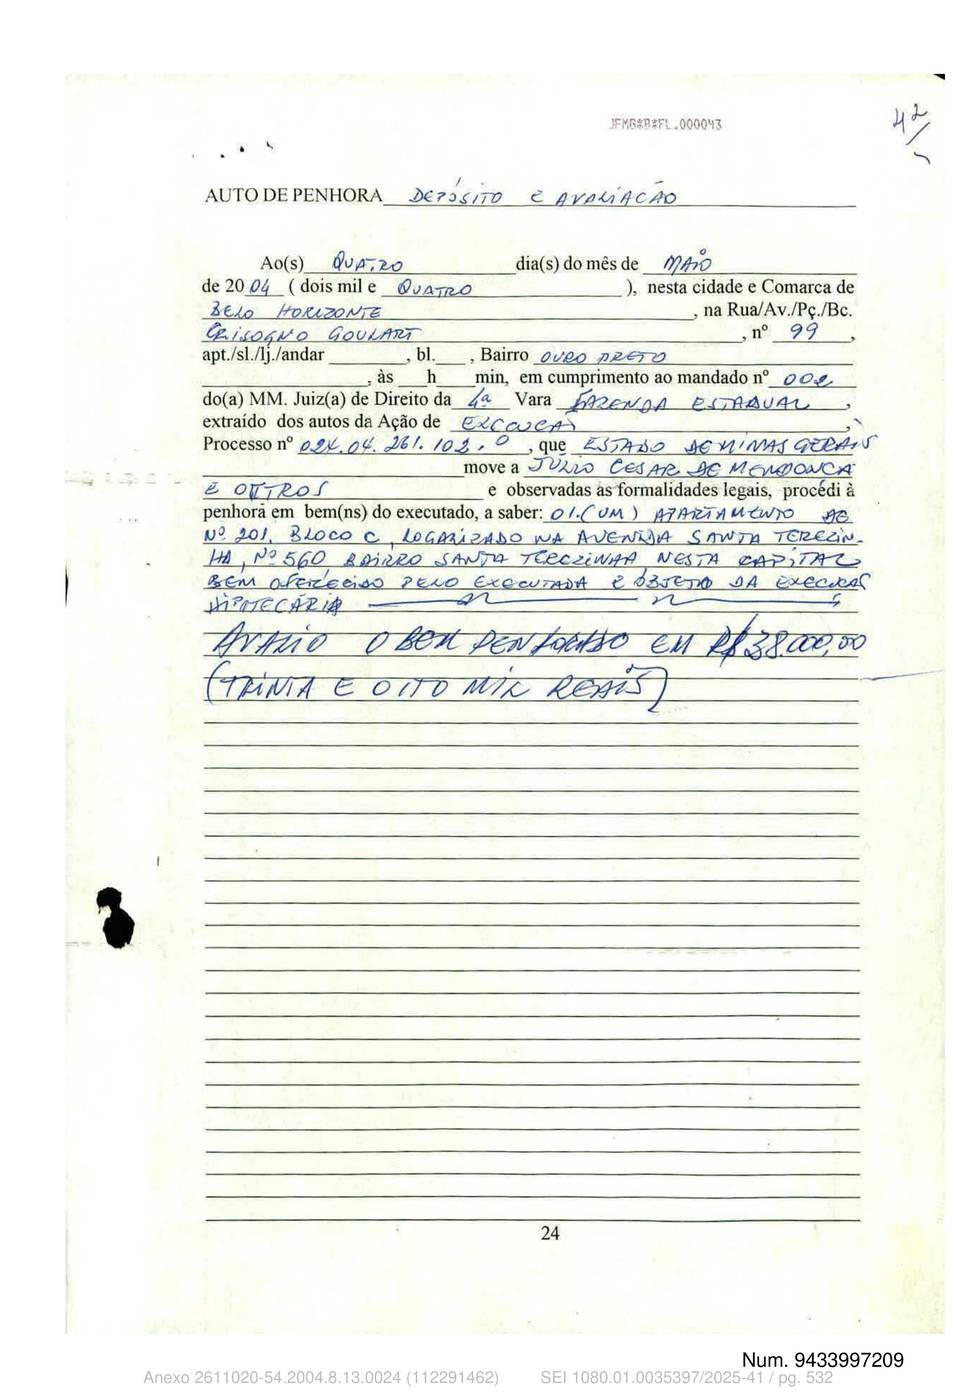 JFMG*B*FL.000043
42
AUTO DE PENHORA DEPÓSITO E AVALIAÇÃO
Ao(s) QUATRO dia(s) do mês de MAIO
de 2004 ( dois mil e QUATRO ), nesta cidade e Comarca de
BELO HORIZONTE , na Rua/Av./Pç./Bc.
CRISOGNO GOULART , nº 99 ,
apt./sl./lj./andar , bl. , Bairro OURO PRETO
, às h min, em cumprimento ao mandado nº 002
do(a) MM. Juiz(a) de Direito da 4ª Vara FAZENDA ESTADUAL ,
extraído dos autos da Ação de ,
Processo nº 024.04.261.102.0 , que ESTADO DE MINAS GERAIS
move a JULIO CESAR DE MENDONCA
E OUTROS e observadas as formalidades legais, procedi à
penhora em bem(ns) do executado, a saber: 01.(UM) APARTAMENTO DE
Nº 201, BLOCO C, LOCALIZADO NA AVENIDA SANTA TEREZIN-
HA, Nº 560 BAIRRO SANTA TEREZINHA, NESTA CAPITAL
BEM OFERECIDO PELO EXECUTADA E OBJETO DA
HIPOTECÁRIA
AVALIO O BEM PENHORADO EM R$38.000,00
(TRINTA E OITO MIL REAIS)
24
Num. 9433997209
Anexo 2611020-54.2004.8.13.0024 (112291462) SEI 1080.01.0035397/2025-41 / pg. 532